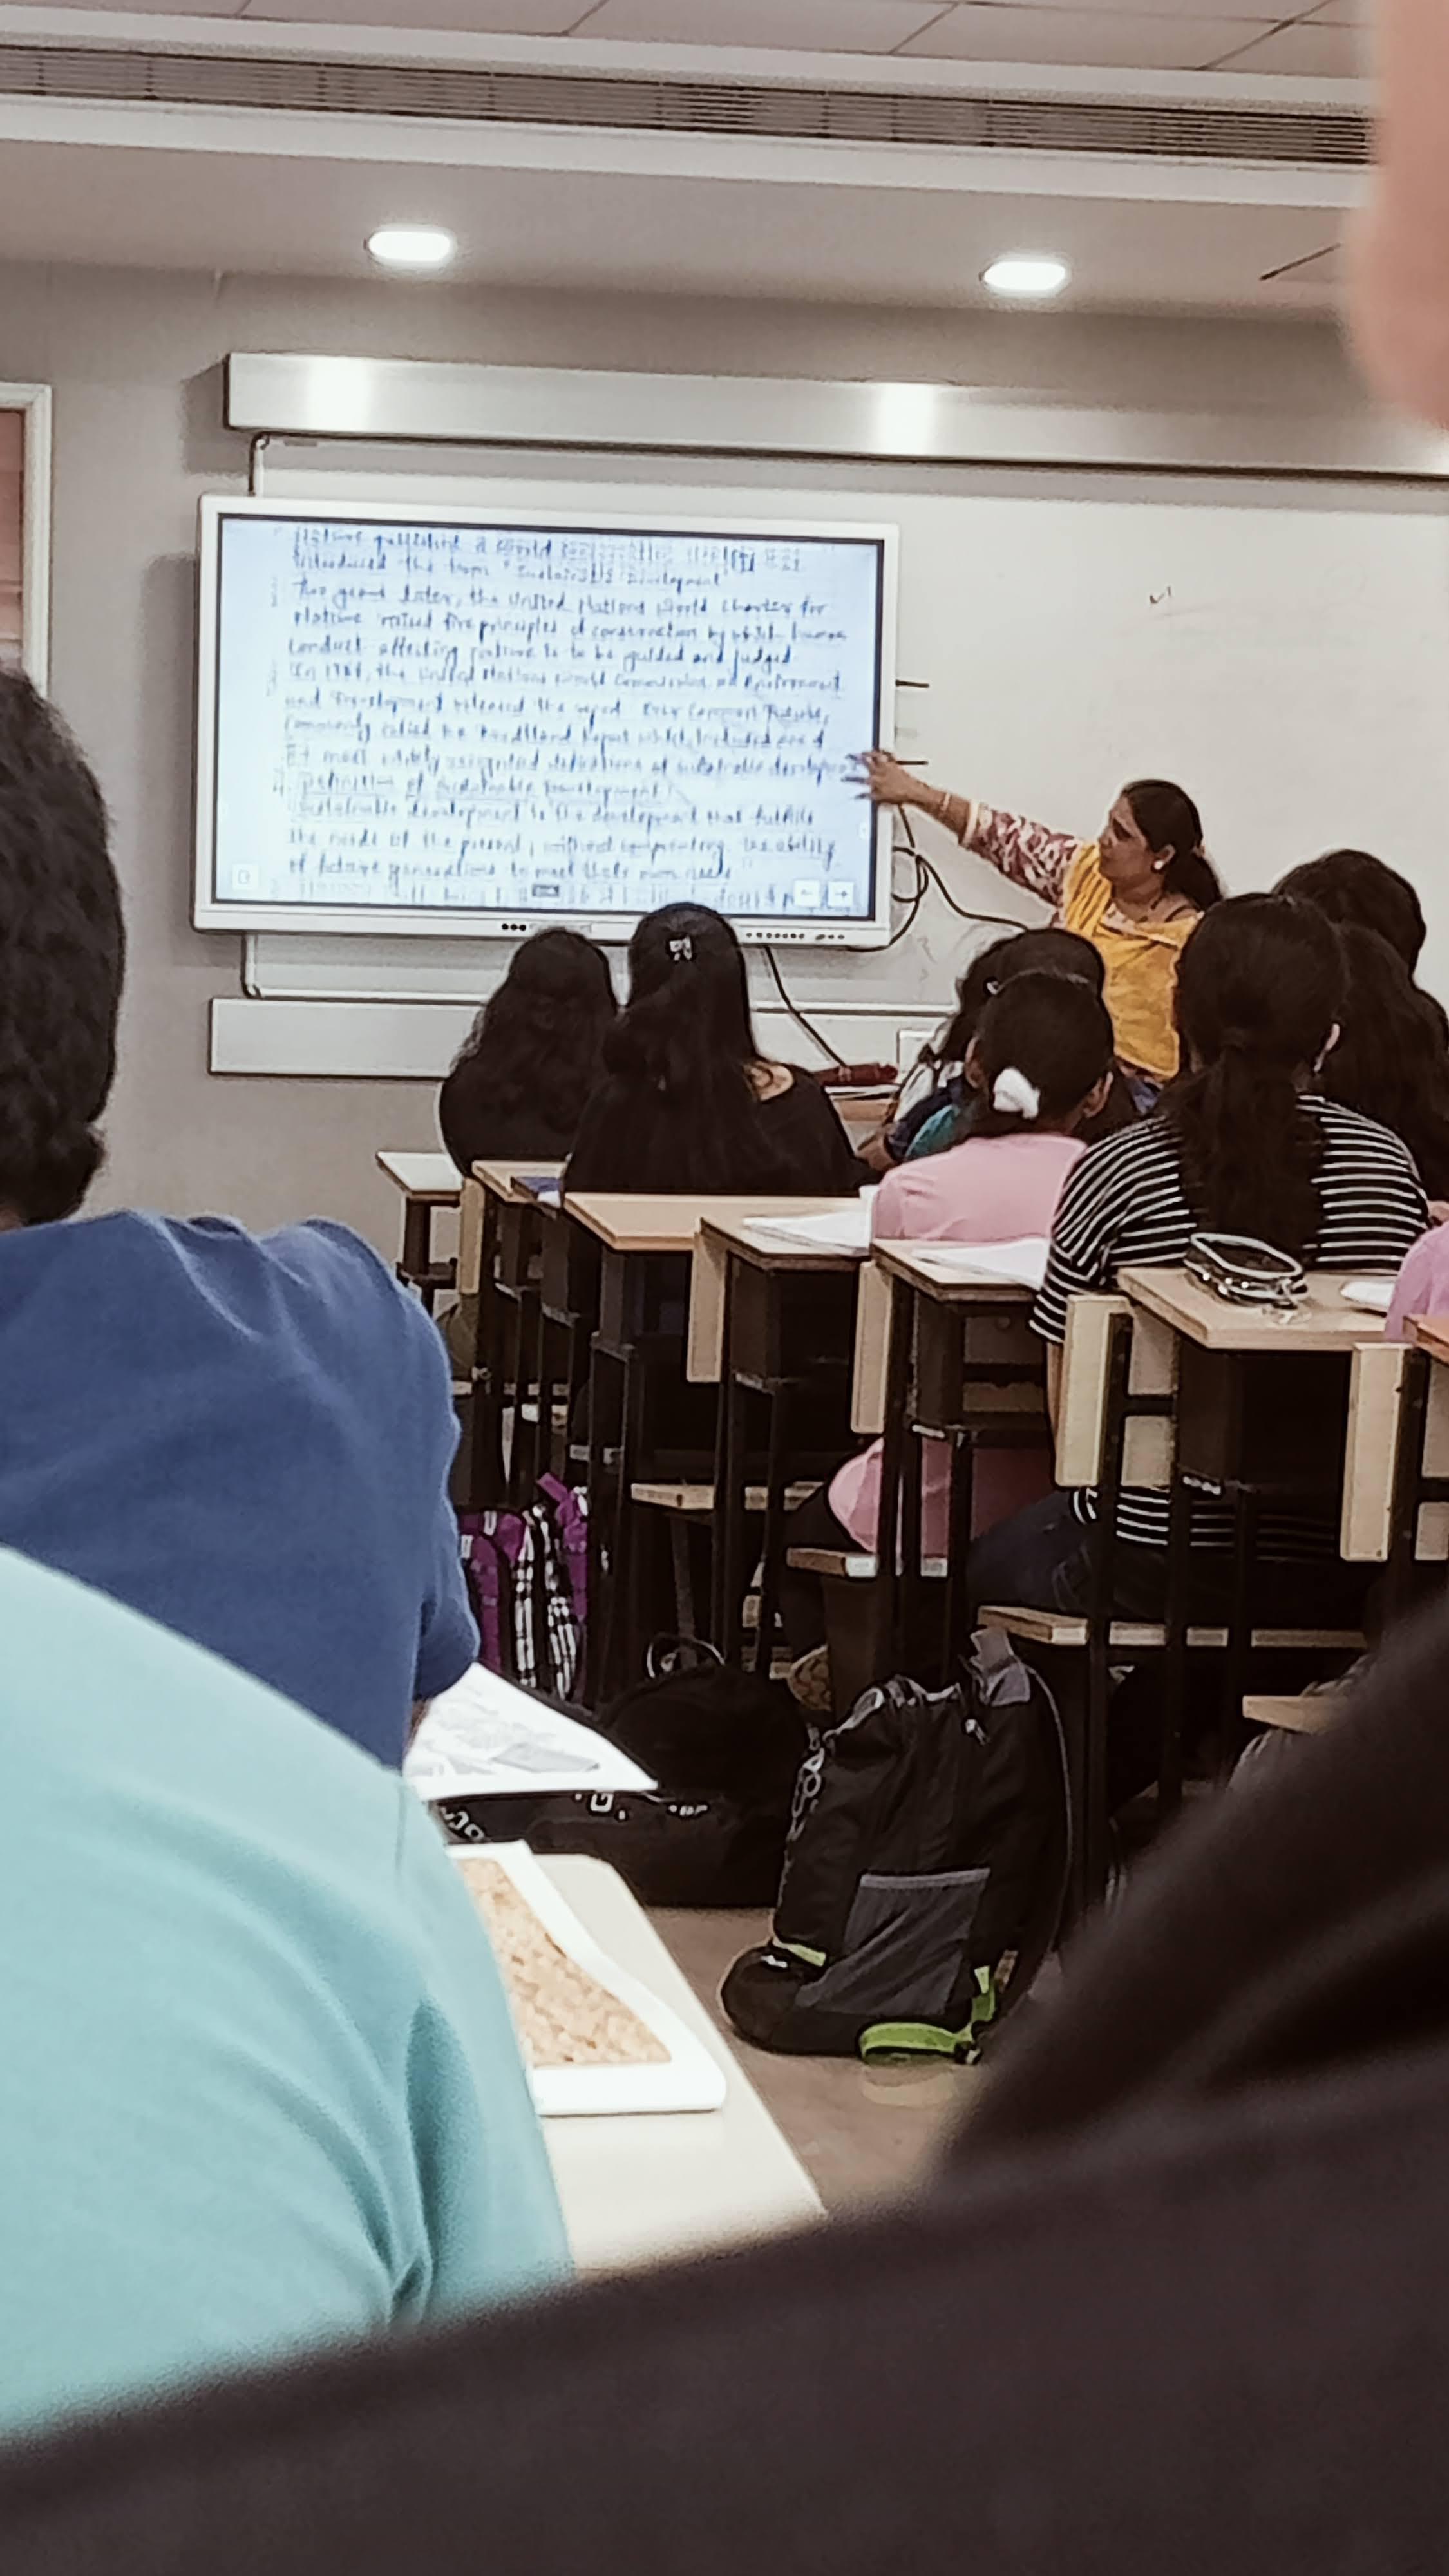 Nature published a world
introduced the term "Sustainable Development"
Two years later, the United Nations World Charter for
Nature raised five principles of conservation by which human
conduct affecting nature is to be guided and judged.
In the United Nations World Commission on Environment
and Development released the report Our Common Future,
Commonly called the Report which included one of
most widely recognised definitions of sustainable development
Definition of sustainable Development:
Sustainable development is the development that fulfills
the needs of the present, without compromising the ability
of future generations to meet their own needs"